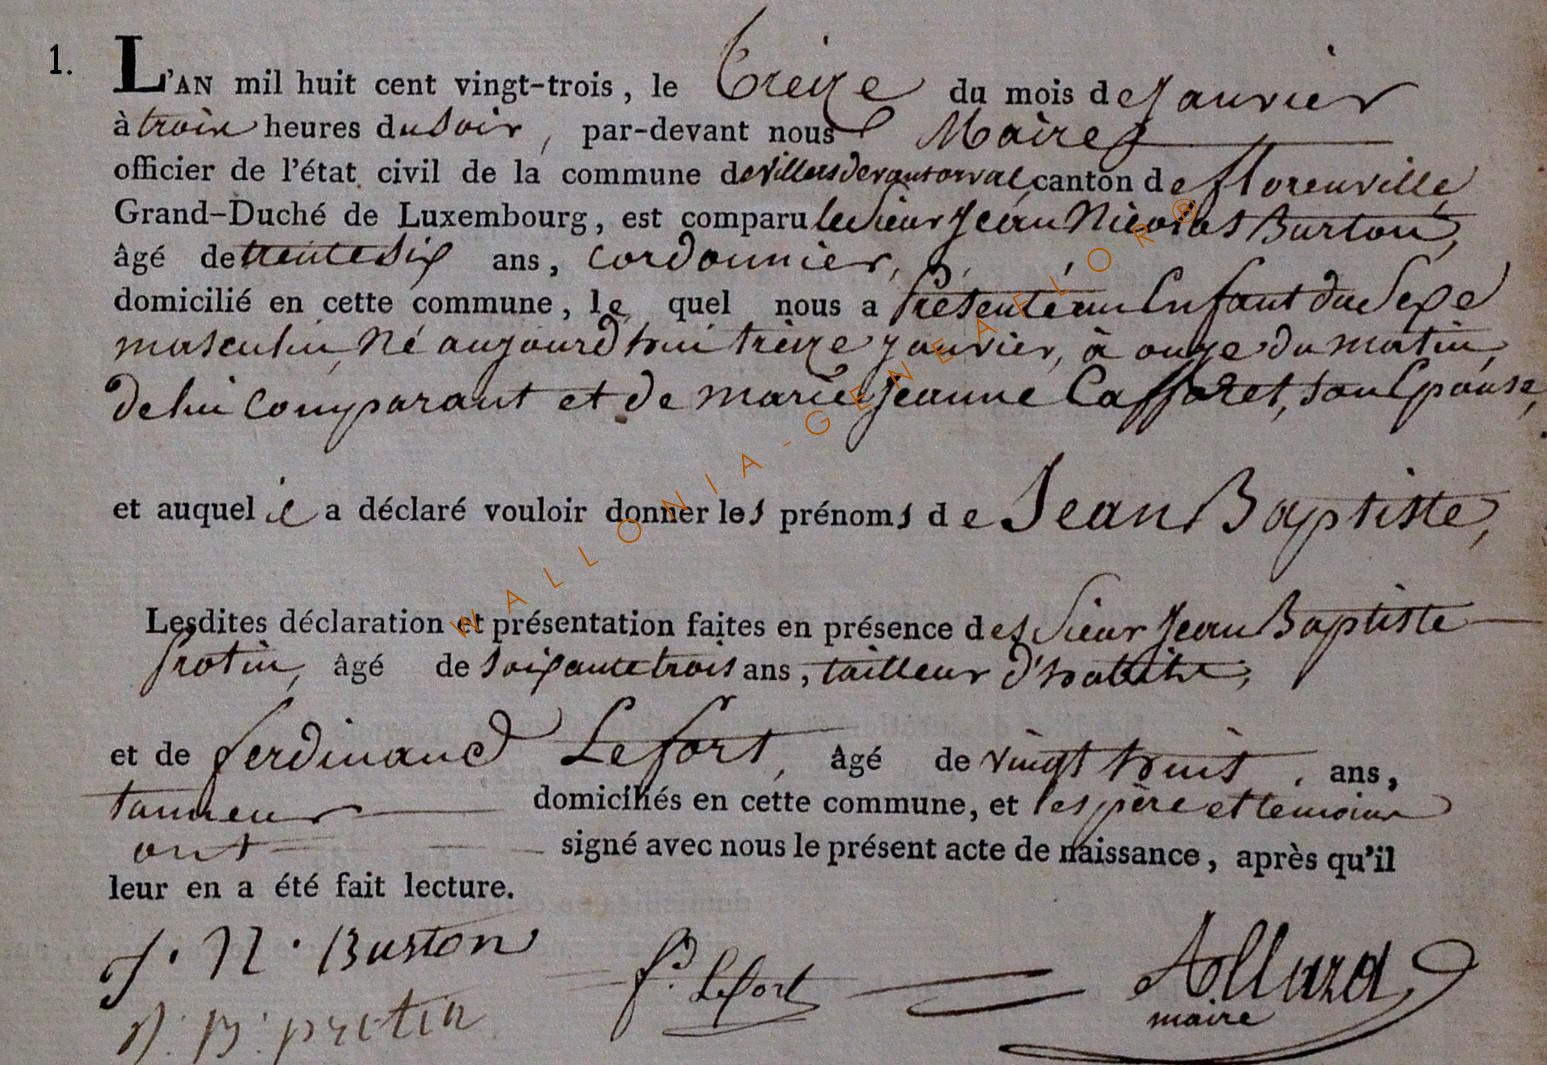 1. L'AN mil huit cent vingt-trois, le treize du mois de janvier
à trois heures du soir, par-devant nous Maire
officier de l'état civil de la commune de villers devant orval canton de florenville
Grand-Duché de Luxembourg, est comparu le Sieur Jean Nicolas Burton,
âgé de trente six ans, cordonnier,
domicilié en cette commune, le quel nous a présenté un Enfant du Sexe
masculin, Né aujourd'hui treize janvier, à onze du matin,
de lui comparant et de marie Jeanne Cafforet, son Epouse,
et auquel il a déclaré vouloir donner les prénoms de Jean Baptiste,
Lesdites déclaration et présentation faites en présence des Sieur Jean Baptiste
Protin, âgé de soixante trois ans, tailleur d'habits,
et de ferdinand Lefort, âgé de vingt huit ans,
tanneur domiciliés en cette commune, et les père et temoins
ont signé avec nous le présent acte de naissance, après qu'il
leur en a été fait lecture.
J. N. Burton
fd. Lefort
Allard
maire
J. B. protin
WALLONIA-GENEAFLOR®